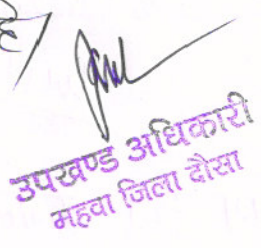 उपखण्ड अधिकारी
महवा जिला दौसा